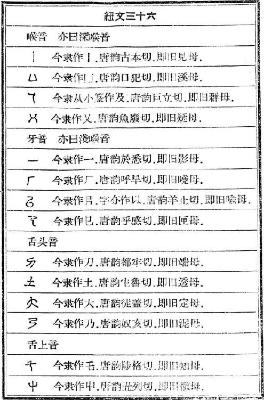 纽文三十六
喉音 亦曰深喉音
今隶作丨.唐韵古本切.即旧見母.
今隶作凵.唐韵口犯切.即旧溪母.
今隶从小篆作及.唐韵巨立切.即旧群母.
今隶作乂.唐韵魚廢切.即旧疑母.
牙音 亦曰淺喉音
今隶作一.唐韵於悉切.即旧影母.
今隶作厂.唐韵呼旱切.即旧曉母.
今隶作㠯.字亦作以.唐韵羊止切.即旧喻母.
今隶作.唐韵乎感切.即旧匣母.
舌头音
今隶作刀.唐韵都牢切.即旧端母.
今隶作土.唐韵它魯切.即旧透母.
今隶作大.唐韵徒蓋切.即旧定母.
今隶作乃.唐韵奴亥切.即旧泥母.
舌上音
今隶作乇.唐韵陟格切.即旧知母.
今隶作屮.唐韵丑列切.即旧徹母.